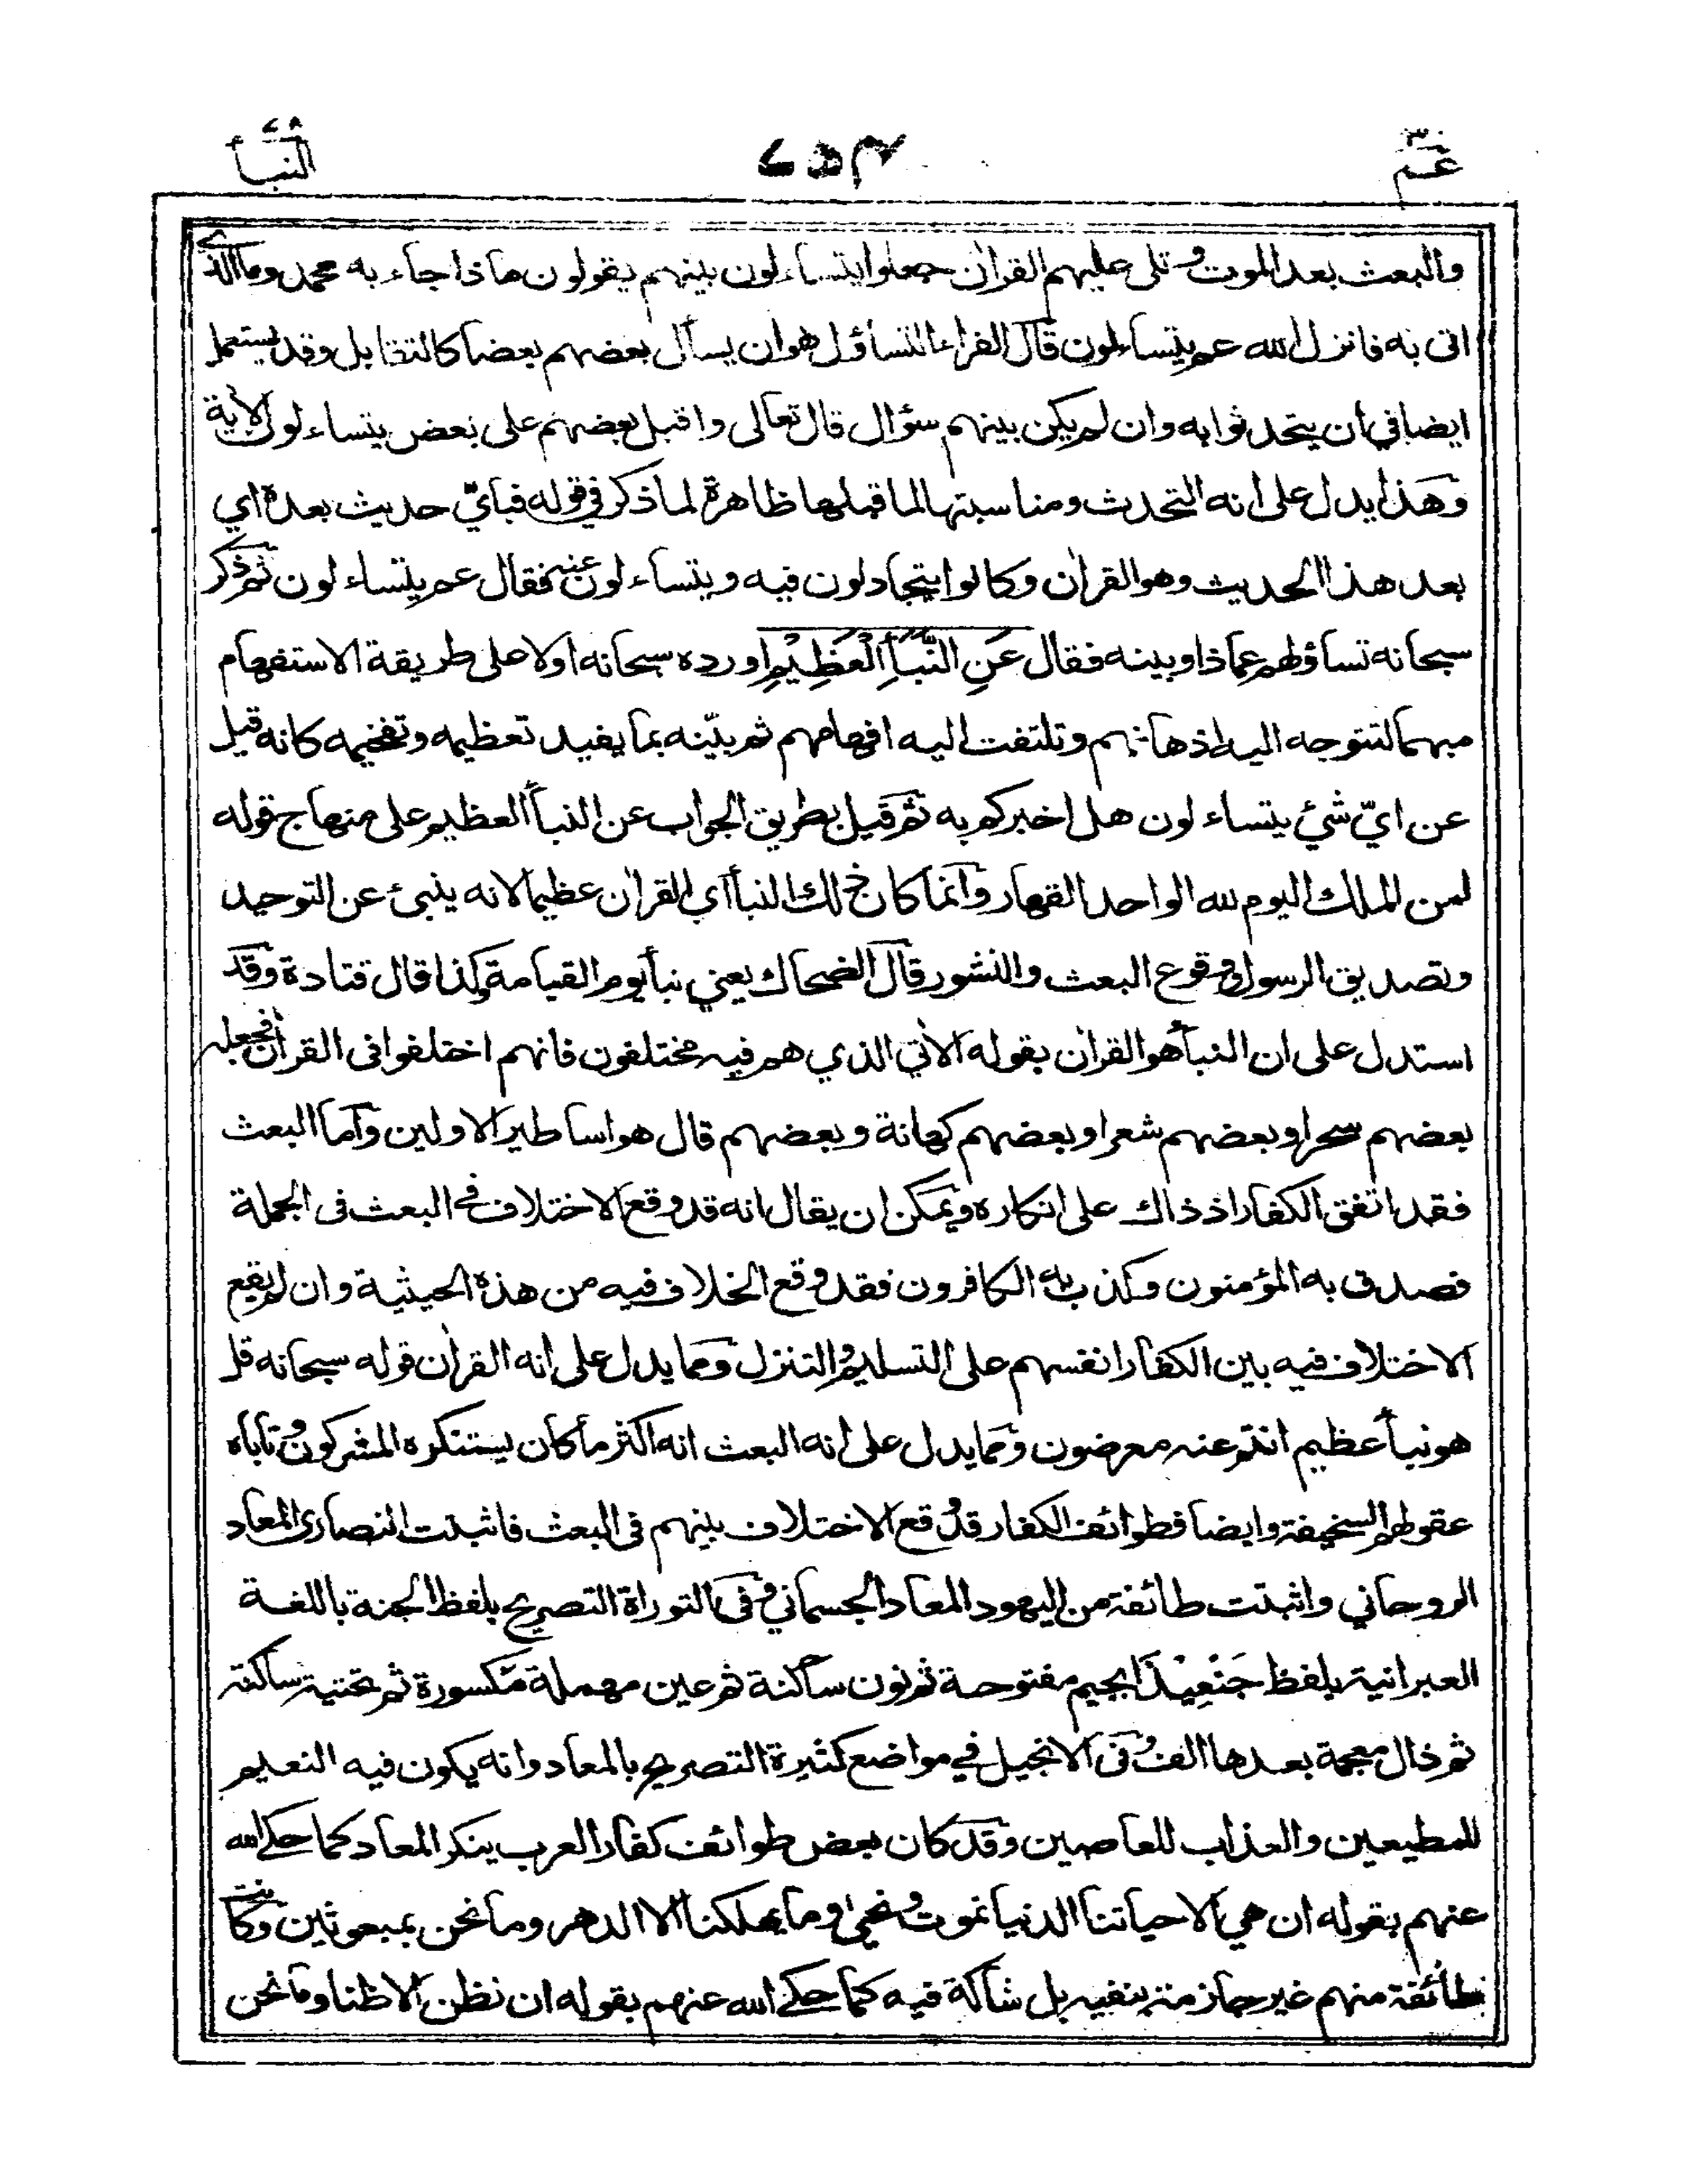 عمّ ٤٥٣ النبأ
والبعث بعد الموت وتلى عليهم القراٰن جعلوا يتساءلون بينهم يقولون ماذا جاء به محمد وما الذي
اتى به فانزل الله عم يتساءلون قال الفراء التساؤل هو ان يسأل بعضهم بعضا كالتقابل وقد يستعمل
ايضا في أن يتحدثوا به وان لم يكن بينهم سؤال قال تعالى واقبل بعضهم على بعض يتساءلون الاٰية
وهذا يدل على انه التحدث ومناسبتها لما قبلها ظاهرة لما ذكر في قوله فبايّ حديث بعده اي
بعد هذا الحديث وهو القراٰن وكانوا يتجادلون فيه ويتساءلون عنه فقال عم يتساءلون ثم ذكر
سبحانه تساؤلهم عماذا وبينه فقال عَنِ النَّبَأِ الْعَظِيْمِ اورده سبحانه اولا على طريقة الاستفهام
مبهما لتتوجه اليه اذهانهم وتلتفت اليه افهامهم ثم بيّنه بما يفيد تعظيمه وتفخيمه كانه قيل
عن ايّ شئ يتساءلون هل اخبركم به ثم قيل بطريق الجواب عن النبأ العظيم على منهاج قوله
لمن الملك اليوم لله الواحد القهار وانما كان ذلك النبأ اي القراٰن عظيما لانه ينبئ عن التوحيد
وتصديق الرسول ووقوع البعث والنشور قال الضحاك يعني نبأ يوم القيامة وكذا قال قتادة وقد
استدل على ان النبأ هو القراٰن بقوله الاٰتي الذي هم فيه مختلفون فانهم اختلفوا فى القراٰن فجعله
بعضهم سحرا وبعضهم شعرا وبعضهم كهانة وبعضهم قال هو اساطير الاولين واما البعث
فقد اتفق الكفار اذ ذاك على انكاره ويمكن ان يقال انه قد وقع الاختلاف في البعث فى الجملة
فصدق به المؤمنون وكذب به الكافرون فقد وقع الخلاف فيه من هذه الحيثية وان لم يقع
الاختلاف فيه بين الكفار انفسهم على التسليم والتنزل ومما يدل على انه القراٰن قوله سبحانه قل
هو نبأ عظيم انتم عنه معرضون ومما يدل على انه البعث انه اكثر ما كان يستنكره المشركون وتأباه
عقولهم السخيفة وايضا فطوائف الكفار قد وقع الاختلاف بينهم فى البعث فاثبتت النصارى المعاد
الروحاني واثبتت طائفة من اليهود المعاد الجسماني وفى التوراة التصريح بلفظ الجنة باللغة
العبرانية بلفظ جَنْعِيْذَا بجيم مفتوحة ثم نون ساكنة ثم عين مهملة مكسورة ثم تحتية ساكنة
ثم ذال معجمة بعدها الف وفى الانجيل في مواضع كثيرة التصريح بالمعاد وانه يكون فيه النعيم
للمطيعين والعذاب للعاصين وقد كان بعض طوائف كفار العرب ينكر المعاد كما حكى الله
عنهم بقوله ان هي الا حياتنا الدنيا نموت ونحيٰى وما يهلكنا الا الدهر وما نحن بمبعوثين وكانت
طائفة منهم غير جازمة بنفيه بل شاكة فيه كما حكى الله عنهم بقوله ان نظن الا ظنا وما نحن